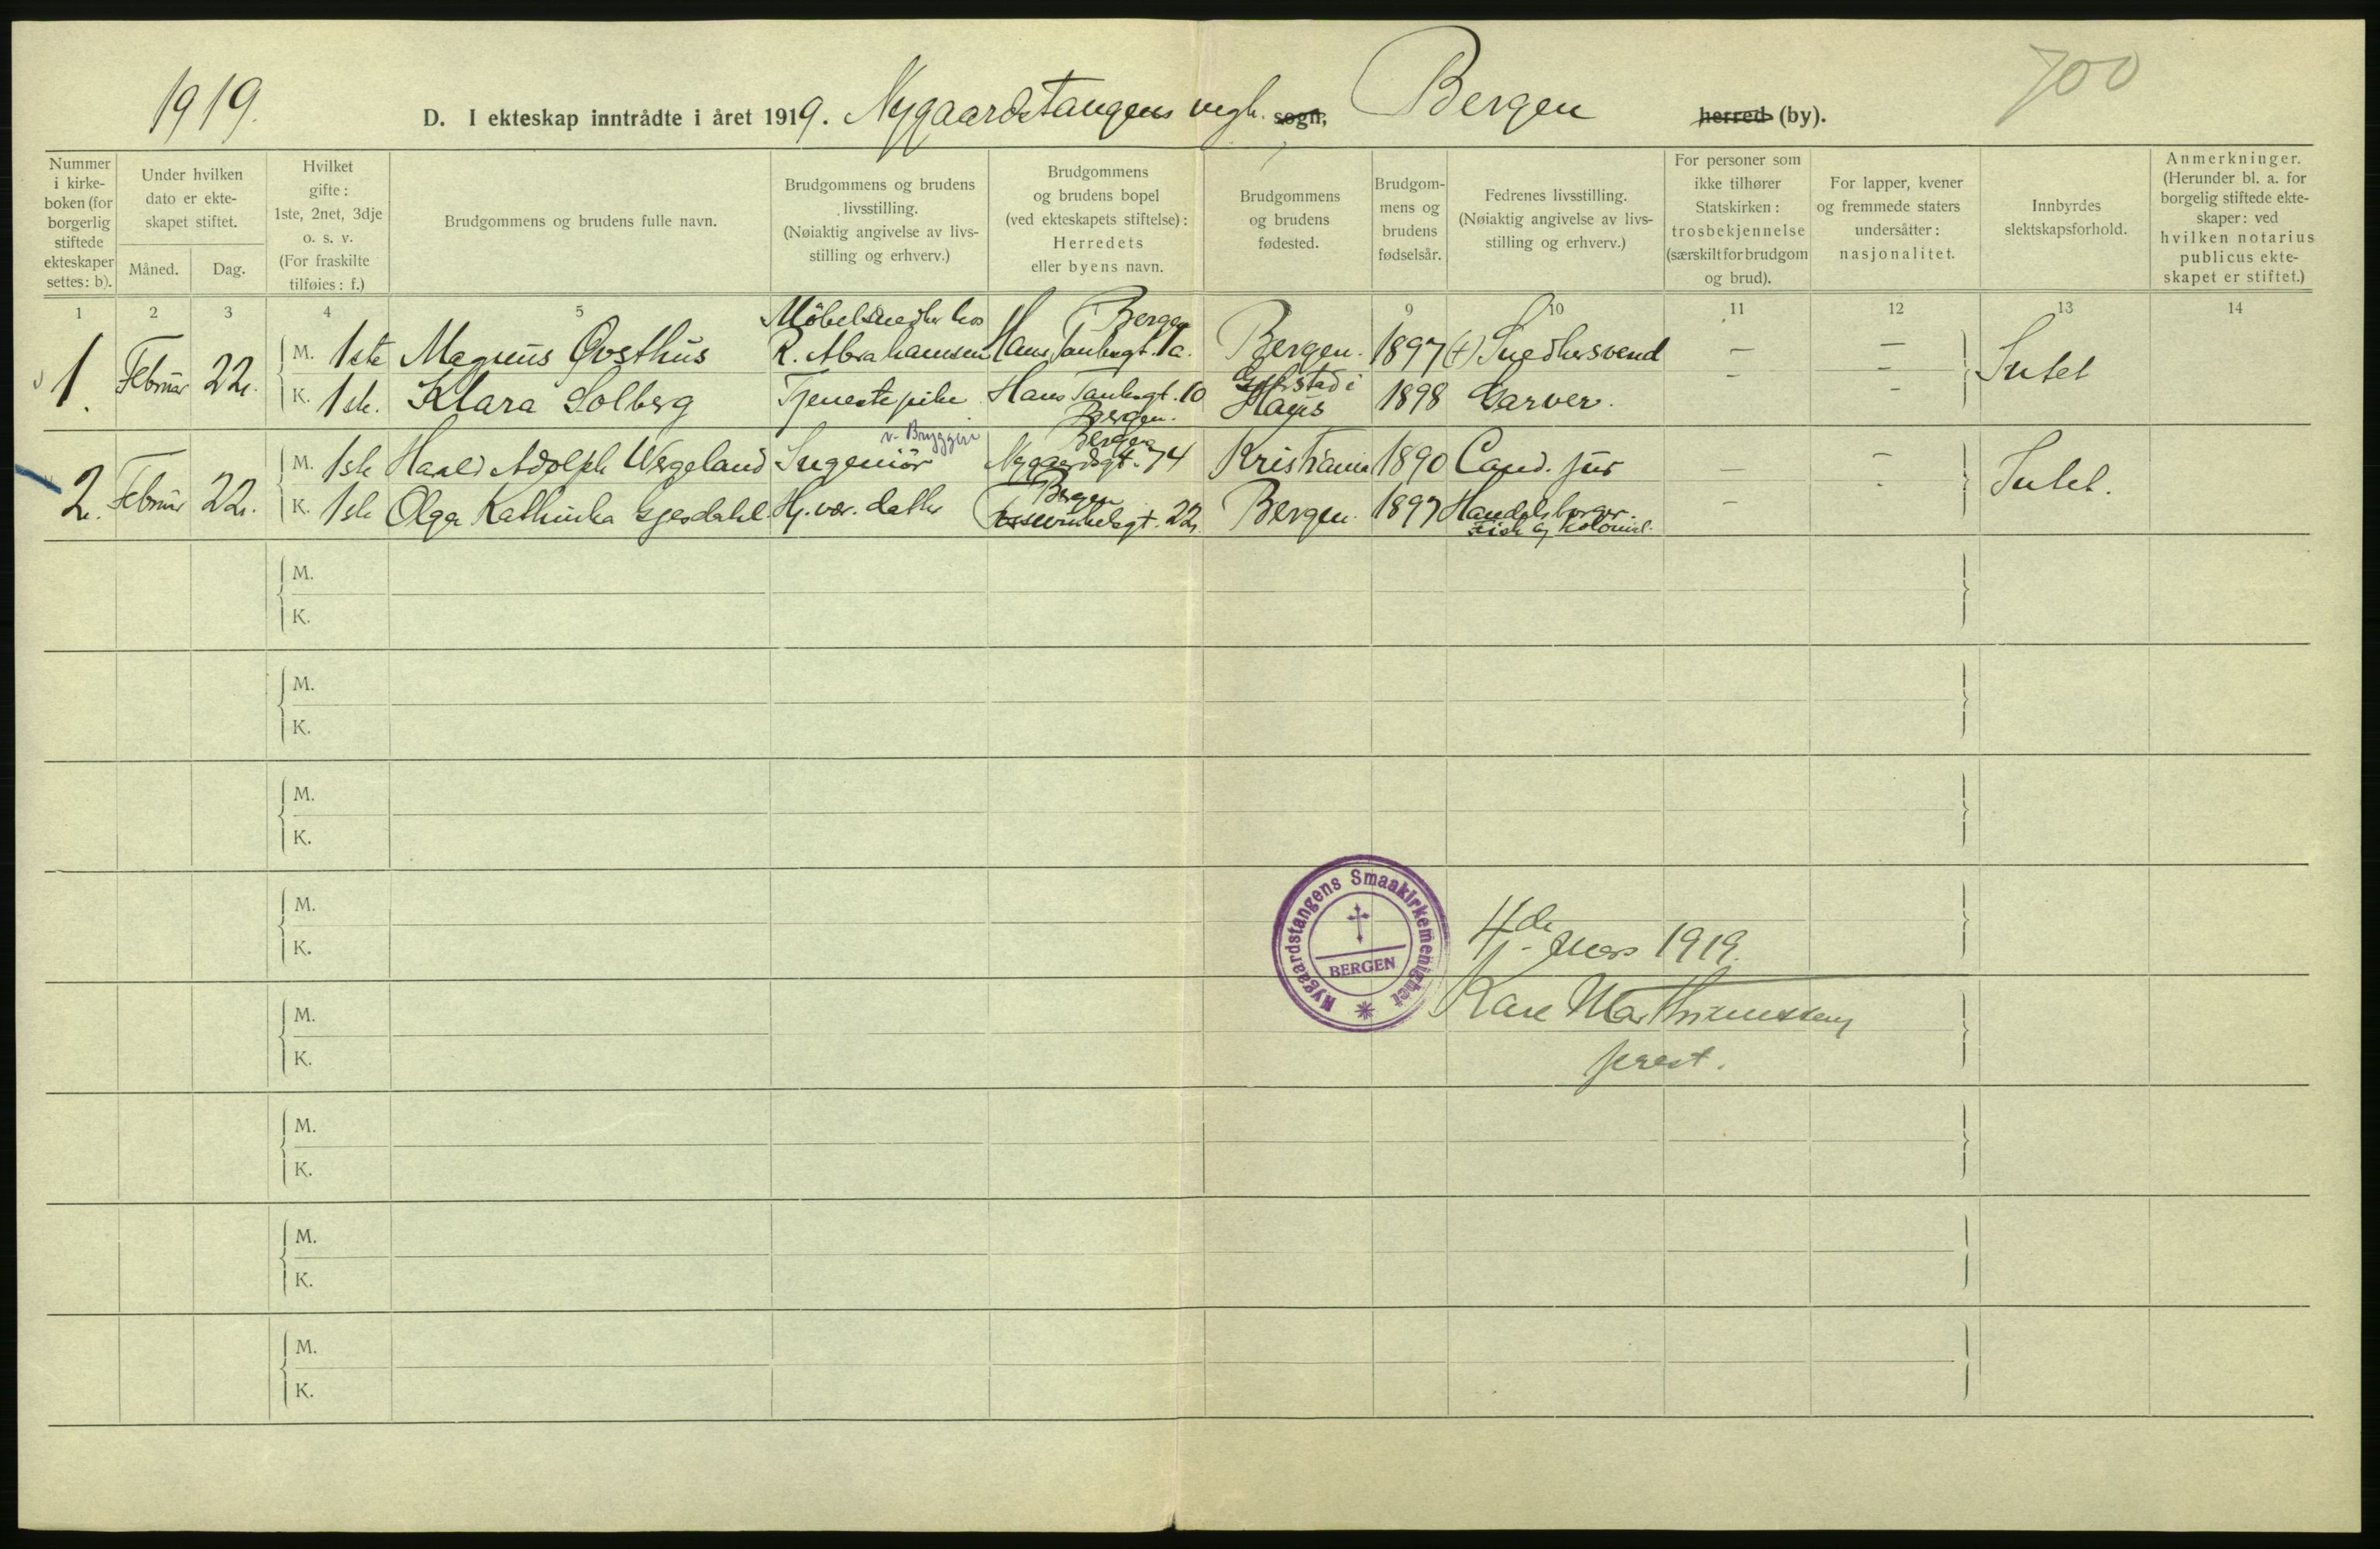 1919.
700
D. I ekteskap inntrådte i året 1919. Nygaardstangens sogn, Bergen herred (by).
Nummer i kirke-boken (for borgerlig stiftede ekteskaper settes: b).
Under hvilken dato er ekte-skapet stiftet.
Måned.
Dag.
Hvilket gifte: 1ste, 2net, 3dje o. s. v. (For fraskilte tilføies: f.)
Brudgommens og brudens fulle navn.
Brudgommens og brudens livsstilling. (Nøiaktig angivelse av livs-stilling og erhverv.)
Brudgommens og brudens bopel (ved ekteskapets stiftelse): Herredets eller byens navn.
Brudgommens og brudens fødested.
Brudgom-mens og brudens fødselsår.
Fedrenes livsstilling. (Nøiaktig angivelse av livs-stilling og erhverv.)
For personer som ikke tilhører Statskirken: trosbekjennelse (særskilt for brudgom og brud).
For lapper, kvener og fremmede staters undersåtter: nasjonalitet.
Innbyrdes slektskapsforhold.
Anmerkninger. (Herunder bl. a. for borgelig stiftede ekte-skaper: ved hvilken notarius publicus ekte-skapet er stiftet.)
1 2 3 4 5 9 10 11 12 13 14
1. Februar 22. M. 1ste Magnus Øvsthus Möbelsnedker hos R. Abrahamsen Bergen Hans Tanksgt. 1a. Bergen. 1897 (+) Snedkersvend — — Intet
K. 1ste. Klara Solberg Tjenestepike Hans Tanksgt. 10 Bergen. Haus 1898 Garver. - -
2. Februar 22. M. 1ste Harald Adolph Wergeland Ingeniör v. Bryggeri Bergen Nygaardsgt. 74 Kristiania 1890 Cand. jur — — Intet.
K. 1ste Olga Kathinka Gjesdahl. Hj. vær. datter Bergen 22. Bergen. 1897 Handelsborger. Fisk og Kolonial. — -
M.
K.
M.
K.
M.
K.
M.
K.
M.
K.
M.
K.
M.
K.
M.
K.
Nygaardstangens Smaakirkemenighet
BERGEN
4de Mars 1919.
prest.